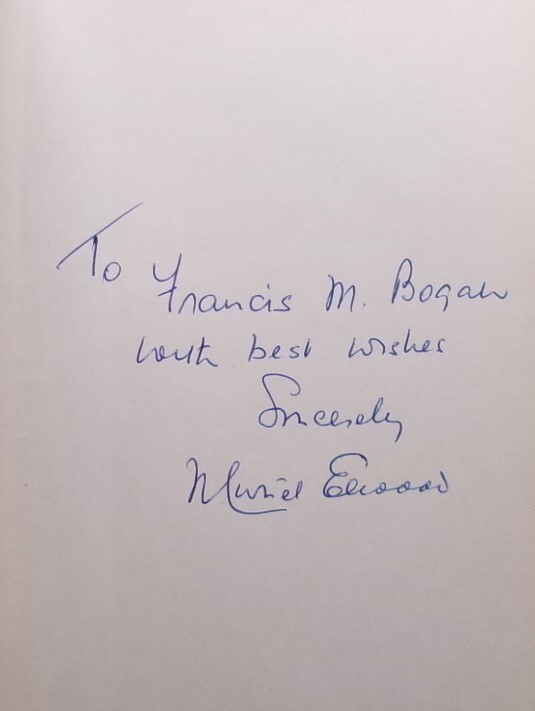 To Francis M. Bogan
with best wishes
Sincerely
Muriel Elwood